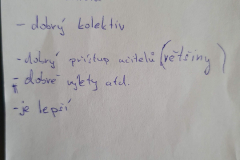 - dobrý kolektiv
- dobrý přístup učitelů (většiny)
- dobré výlety atd.
- je lepší